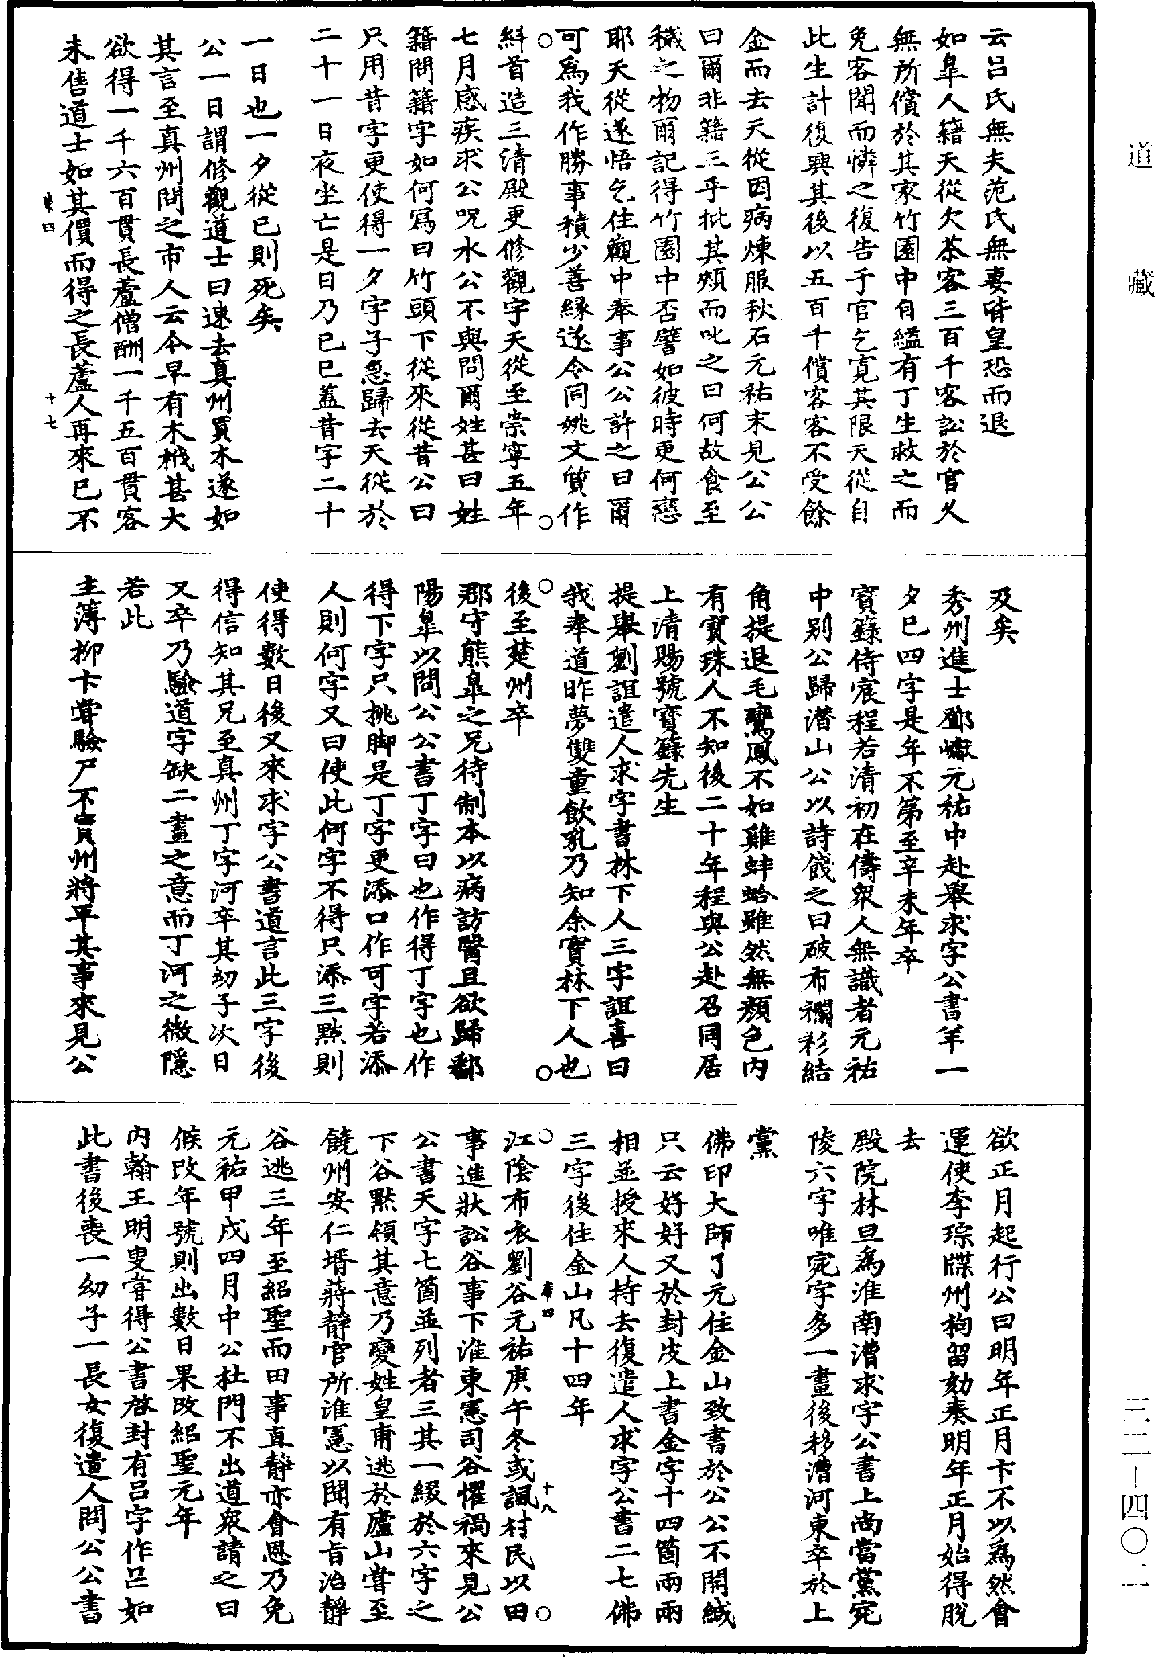 云呂氏無夫范氏無妻皆皇恐而退
如臯人籍天從欠茶客三百千客訟於官久
無所償於其家竹園中自縊有丁生救之而
免客聞而憐之復告于官乞寬其限天從自
此生計復興其後以五百千償客客不受餘
金而去天從因病煉服秋石元祐末見公公
曰爾非籍三乎批其頰而叱之曰何故食至
穢之物爾記得竹園中否譬如彼時更何戀
耶天從遂悟乞住觀中奉事公公許之曰爾
可爲我作勝事積少善緣遂令同姚文質作
糾首造三清殿更修觀宇天從至崇寧五年
七月感疾求公呪水公不與問爾姓甚曰姓
籍問籍字如何寫曰竹頭下從來從昔公曰
只用昔字更使得一夕字子急歸去天從於
二十一日夜坐亡是日乃己巳蓋昔字二十
一日也一夕從巳則死矣
公一日謂修觀道士曰速去真州買木遂如
其言至真州問之市人云今早有木栰甚大
欲得一千六百貫長蘆僧酬一千五百貫客
未售道士如其價而得之長蘆人再來已不
十七
及矣
秀州進士鄧㦂元祐中赴舉求字公書羊一
夕巳四字是年不第至辛未年卒
寶籙侍宸程若清初在儔衆人無識者元祐
中別公歸潛山公以詩餞之曰破布襴衫結
角提退毛鸞鳳不如雞蚌蛤雖然無顏色內
有寶珠人不知後二十年程與公赴召同居
上清賜號寶籙先生
提舉劉誼遣人求字書林下人三字誼喜曰
我奉道昨夢雙童飲乳乃知余實林下人也
後至楚州卒
郡守熊臯之兄待制本以病訪醫且欲歸鄱
陽臯以問公公書丁字曰也作得丁字也作
得下字只挑脚是丁字更添口作可字若添
人則何字又曰使此何字不得只添三點則
使得數日後又來求字公書道言此三字後
得信知其兄至真州丁字河卒其幼子次日
又卒乃驗道字缺二畫之意而丁河之微隱
若此
主薄柳卞嘗驗尸不實州將平其事來見公
欲正月起行公曰明年正月卞不以爲然會
運使李琮牒州拘留劾奏明年正月始得脫
去
殿院林旦爲淮南漕求字公書上尚當黨宛
陵六字唯宛字多一畫後移漕河東卒於上
黨
佛印大師了元住金山致書於公公不開緘
只云好好又於封皮上書金字十四箇兩兩
相並授來人持去復遣人求字公書二七佛
三字後住金山凡十四年
江陰布衣劉谷元祐庚午冬或諷村民以田
十八
事進狀訟谷事下淮東憲司谷懼禍來見公
公書天字七箇並列者三其一綴於六字之
下谷默領其意乃變姓皇甫逃於廬山嘗至
饒州安仁壻蔣靜官所淮憲以聞有旨治靜
谷逃三年至紹聖而田事直靜亦會恩乃免
元祐甲戌四月中公杜門不出道衆請之曰
候改年號則出數日果改紹聖元年
內翰王明叟嘗得公書啟封有呂字作㠯如
此書後喪一幼子一長女復遣人問公公書
道藏
三二—四〇二